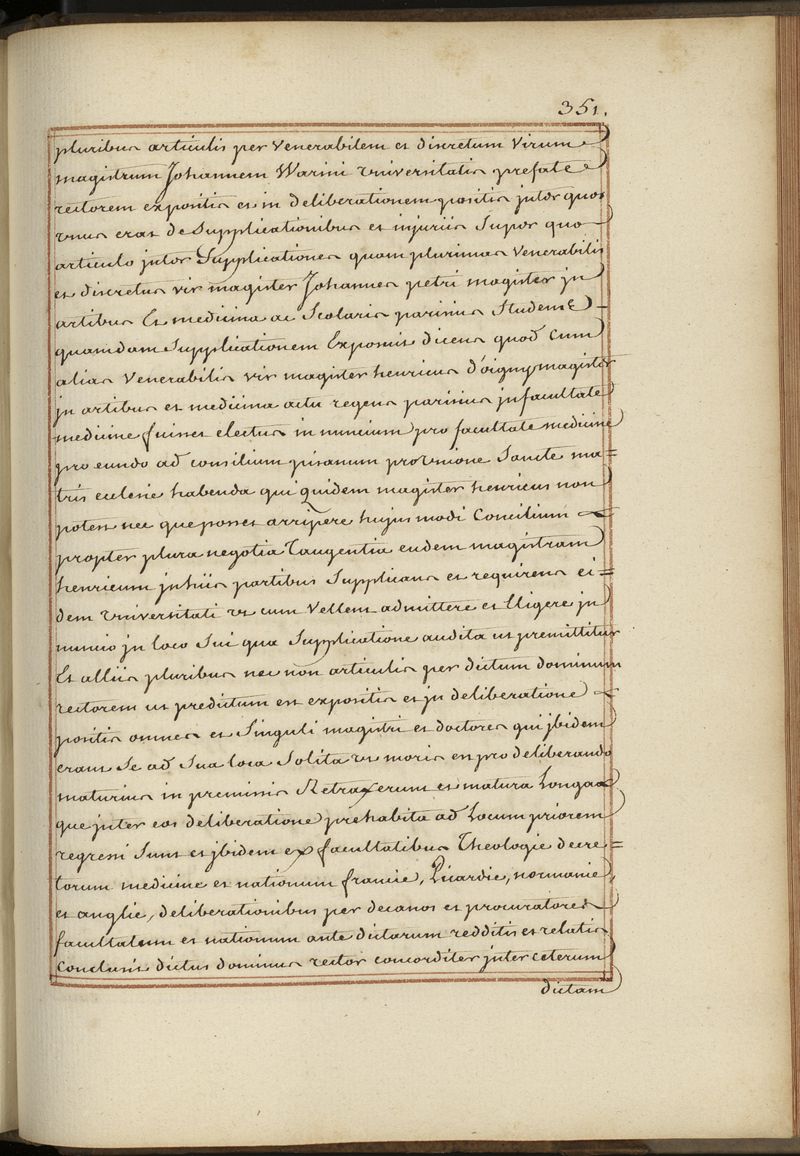 351.
pluribus articulis per Venerabilem et discretum Virum
magistrum Johannem Warini Vniversitatis prefate
rectorem expositis et in deliberationem positis jnter quos
vnus erat de Supplicationibus et injuriis Super quo
articulo jnter Supplicationes quam plurimas Venerabilis
et discretus vir magister Johannes petri magister jn
artibus Et medicina ac Scolaris parisius Studens
quamdam Supplicationem Exposuit dicens quod Cum
alias Venerabilis vir magister henricus d'oigny magister
jn artibus et medicina actu regens parisius jn facultate
medicine fuisset electus in nuncium pro facultate medicine
pro eundo ad consilium pisanum pro Vnione Sancte ma=
tris eclesie habenda qui quidem magister henricus non
potest nec que posset arripere hujus modi Concilium
propter plura negotia Tangentia eudem magistram
henricum jn hiis partibus Supplicans et requirens ei=
dem Vniversitati vt cum Vellent admittere et Eligere jn
nuncio jn loco Sui qua Supplicatione audita ut premittitur
Et alliis pluribus nec non articulis per dictum dominum
rectorem ut predictum est expositis et jn deliberatione
positis omnes et Singuli magistri et doctores qui jbidem
erant Se ad Sua loca Solita vt moris est pro deliberando
maturius in premissis Retraxerunt et matura Longaa
que jnter eos deliberatione prehabita ad Locum priorem
regressi Sunt et jbidem ex facultatibus Theologie decre=
torum medicine et nationum francie, Picardie, normanie,
et anglie, deliberationibus per decanos et procuratores
facultatum et nationum ante dictarum redditis et relatis
Conclusit dictus dominus rector concorditer jnter ceterum
dictam